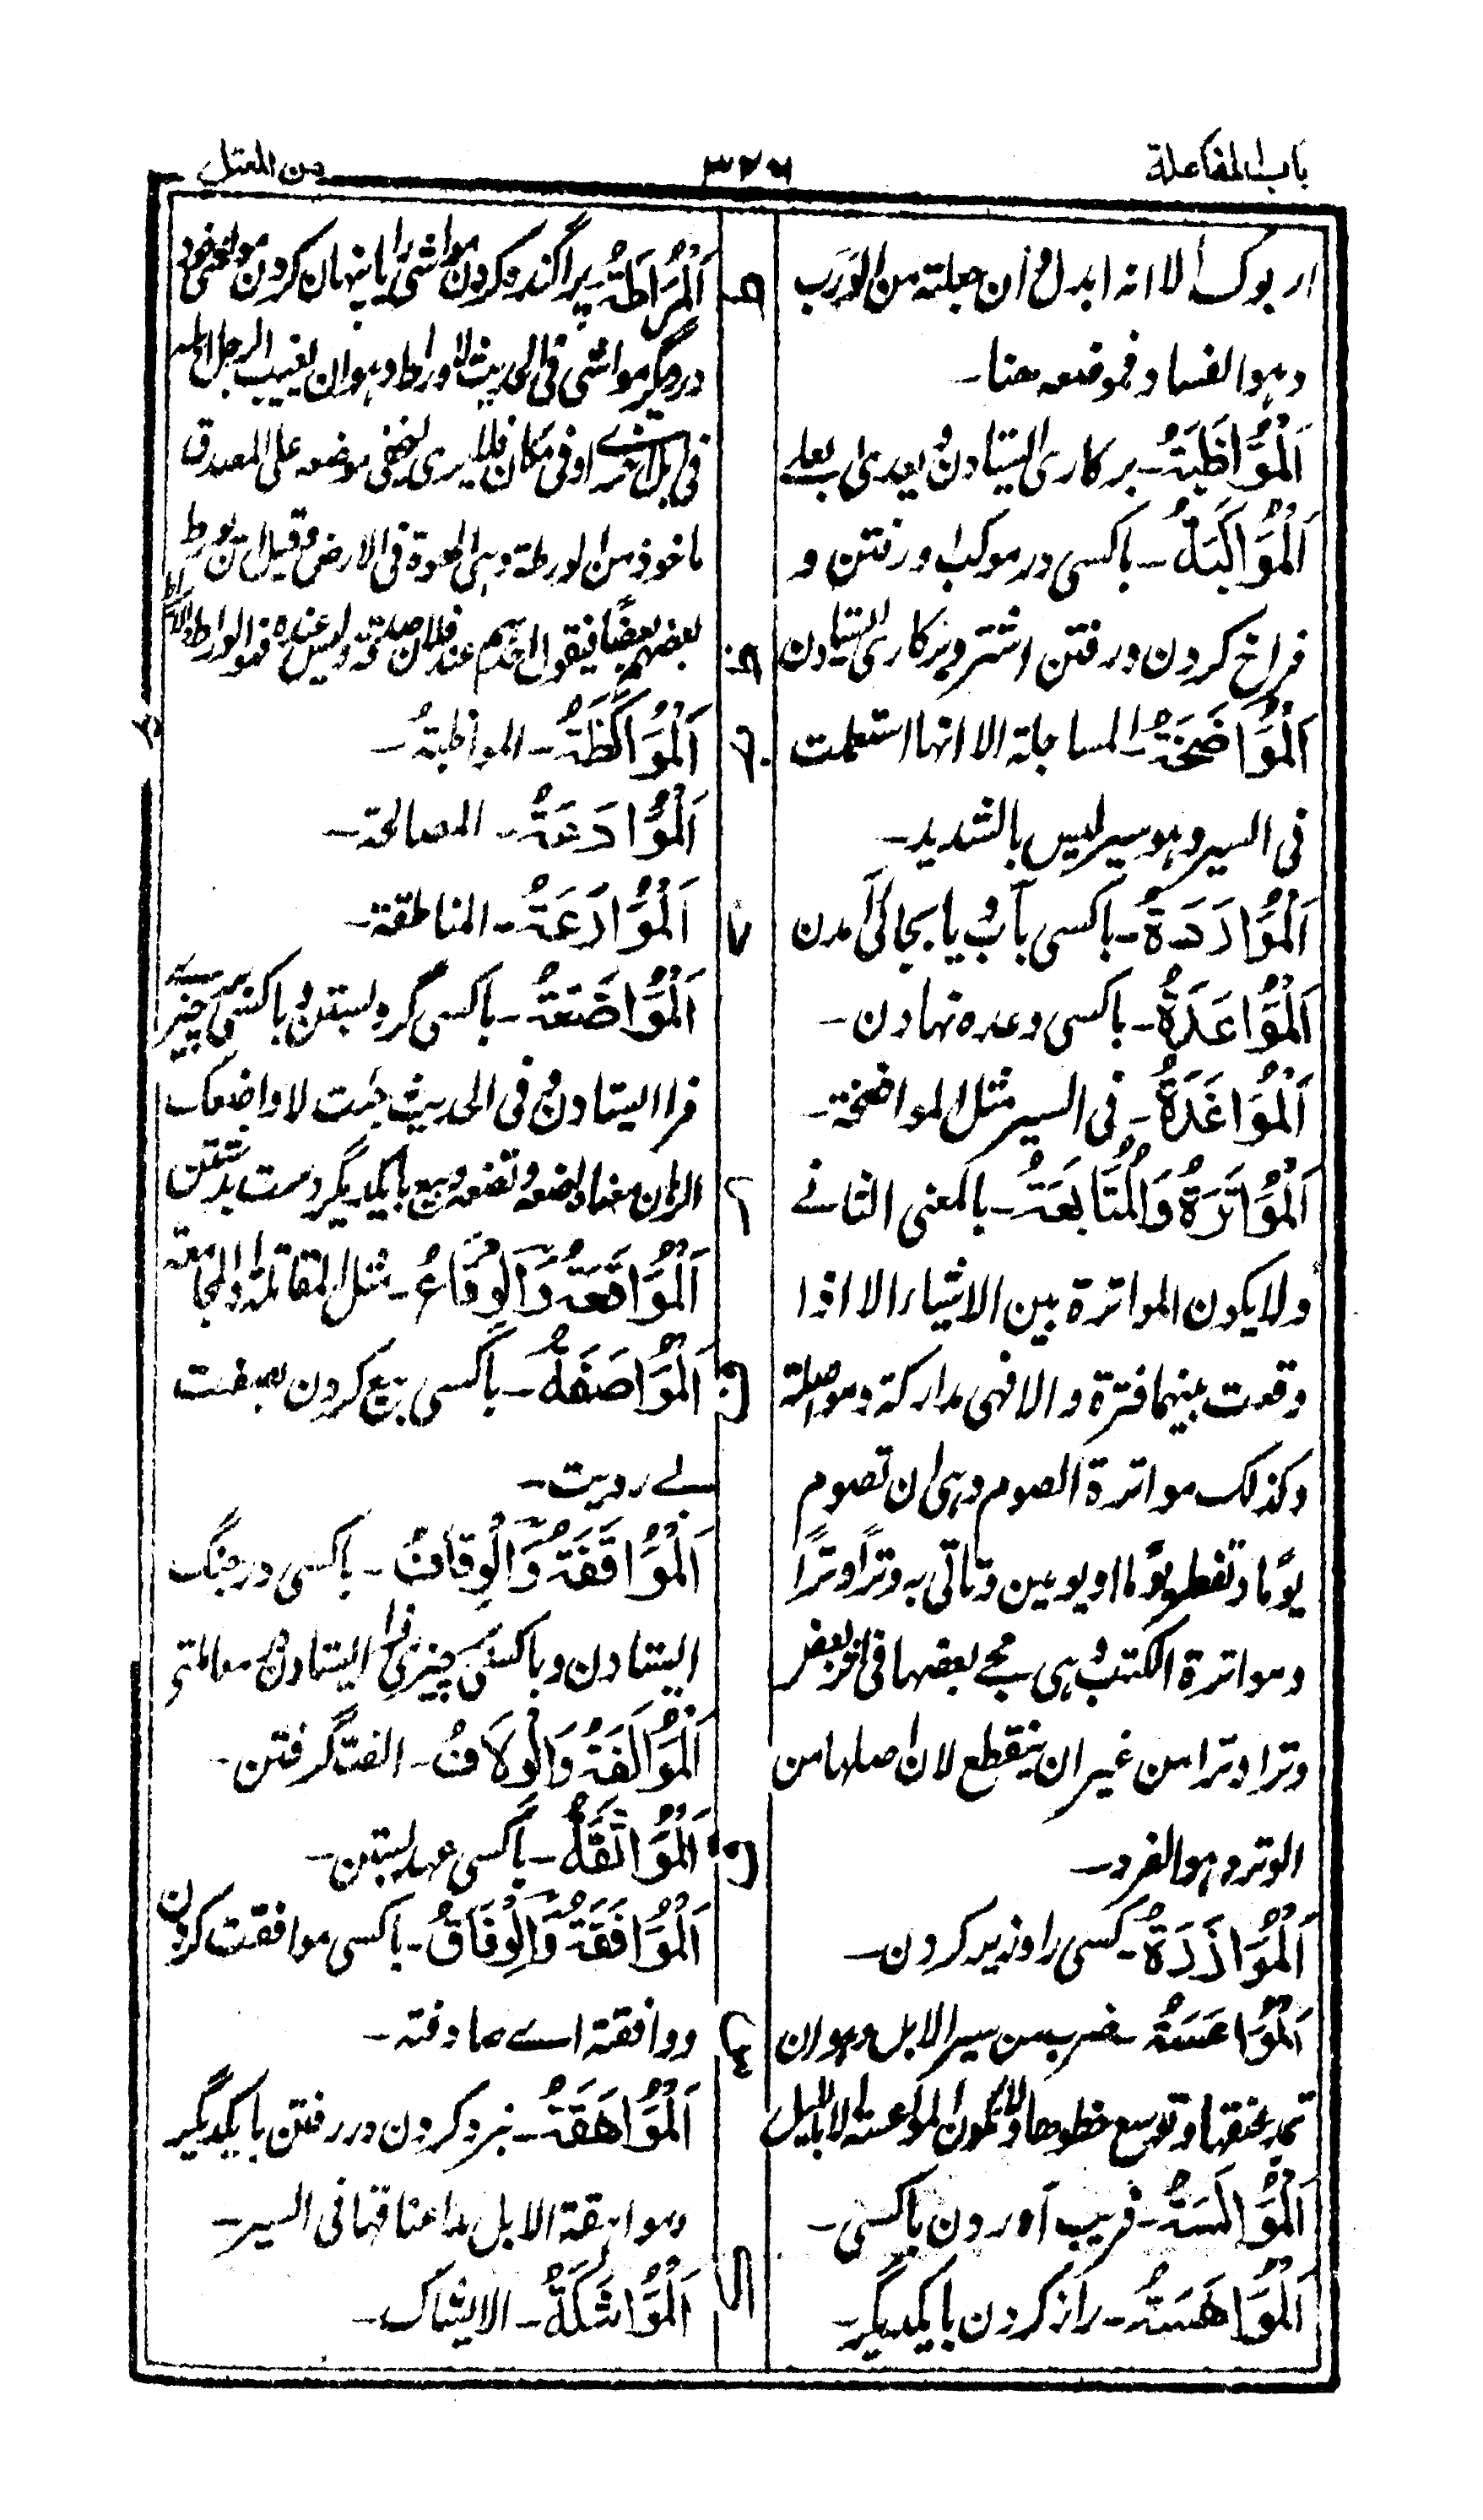 باب المفاعلة
۳۲۶
من المعتل
اربوک الا انه ابدل و ان جعلته من الورب
وهو الفساد فموضعه هنا۔
اَلْمُوَاظَبَةُ۔ برکاری ایستادن و یعدی بعلے
اَلْمُوَاکَبَةُ۔ باکسی در موکب او رفتن و
فراخ کردن در رفتن اشتر و برکاری ایستادن
اَلْمُوَاضَخَةُ۔ المساجلة الا انها استعملت
فی السیر وهو سیر لیس بالشدید۔
اَلْمُوَارَدَةُ۔ باکسی بآب یا بجائی آمدن
اَلْمُوَاعَدَةُ۔ باکسی وعده نهادن۔
اَلْمُوَاغَدَةُ۔ فی السیر مثل المواضخة۔
اَلْمُوَاتَرَةُ وَالْمُتَابَعَةُ۔ بالمعنی الثانے
ولا یکون المواترة بین الاشیاء الا اذا
وقعت بینهما فترة والا فهی مدارکة ومواصلة
وکذلک مواترة الصوم وهی ان تصوم
یومًا وتفطر یومًا او یومین وتاتی به وترًا وترًا
ومواترة الکتب وهی مجئ بعضها فی اثر بعض
وترا وترا من غیر ان ینقطع لان اصلها من
الوتر وهو الفرد۔
اَلْمُوَازَرَةُ۔ کسی را وزیر کردن۔
اَلْمُوَاعَسَةُ۔ ضرب من سیر الابل وهو ان
تمد عنقها وتوسع خطوها ولا تکون المواعسة الا باللیل
اَلْمُوَاکَسَةُ۔ فریب آوردن باکسی۔
اَلْمُوَاهَسَةُ۔ راز کردن بایکدیگر۔
ط اَلْمُوَارَطَةُ۔ پراگنده کردن مواشی را یا پنهان کردن مواشی خود
در دیگر مواشی فی الحدیث لا وراط وهو ان یغیب الرجل ابله
فی ابل اخرے او فی مکان فلا یری لیخفی موضعه علی المصدق
ماخوذ من الورطة وهی الهوة فی الارض وقیل ان یورط
بعضهم بعضًا فیقول احدهم عند فلان صدقة ولیس عنده فهو الوراط
ظ اَلْمُوَاکَظَةُ۔ المواظبة۔
ع اَلْمُوَادَعَةُ۔ المصالحة۔
اَلْمُوَارَعَةُ۔ المناطقة۔
اَلْمُوَاضَعَةُ۔ باکسی گرو بستن و باکسی بر چیزے
فرا ایستادن و فی الحدیث جئت لاواضعک
الرهان معناه لضعه وتضعه وبیع بایکدیگر دست بداشتن
اَلْمُوَاقَعَةُ وَالْوِقَاعُ۔ مثل المقاتلة والمجامعة
ف اَلْمُوَاصَفَةُ۔ باکسی بیع کردن بصفت
بے رویت۔
اَلْمُوَاقَفَةُ وَالْوِقَافُ۔ باکسی در جنگ
ایستادن و باکسی بر چیزی فرا ایستادن در معاملتی
اَلْمُوَالَفَةُ وَالْوِلَافُ۔ الفت گرفتن۔
ق اَلْمُوَاثَقَةُ۔ باکسی عهد بستن۔
اَلْمُوَافَقَةُ وَالْوِفَاقُ۔ باکسی موافقت کردن
ووافقته اے صادفته۔
اَلْمُوَاهَقَةُ۔ نبرد کردن در رفتن بایکدیگر
ومواهقة الابل مد اعناقها فی السیر۔
ک اَلْمُوَاشَکَةُ۔ الایشاک۔